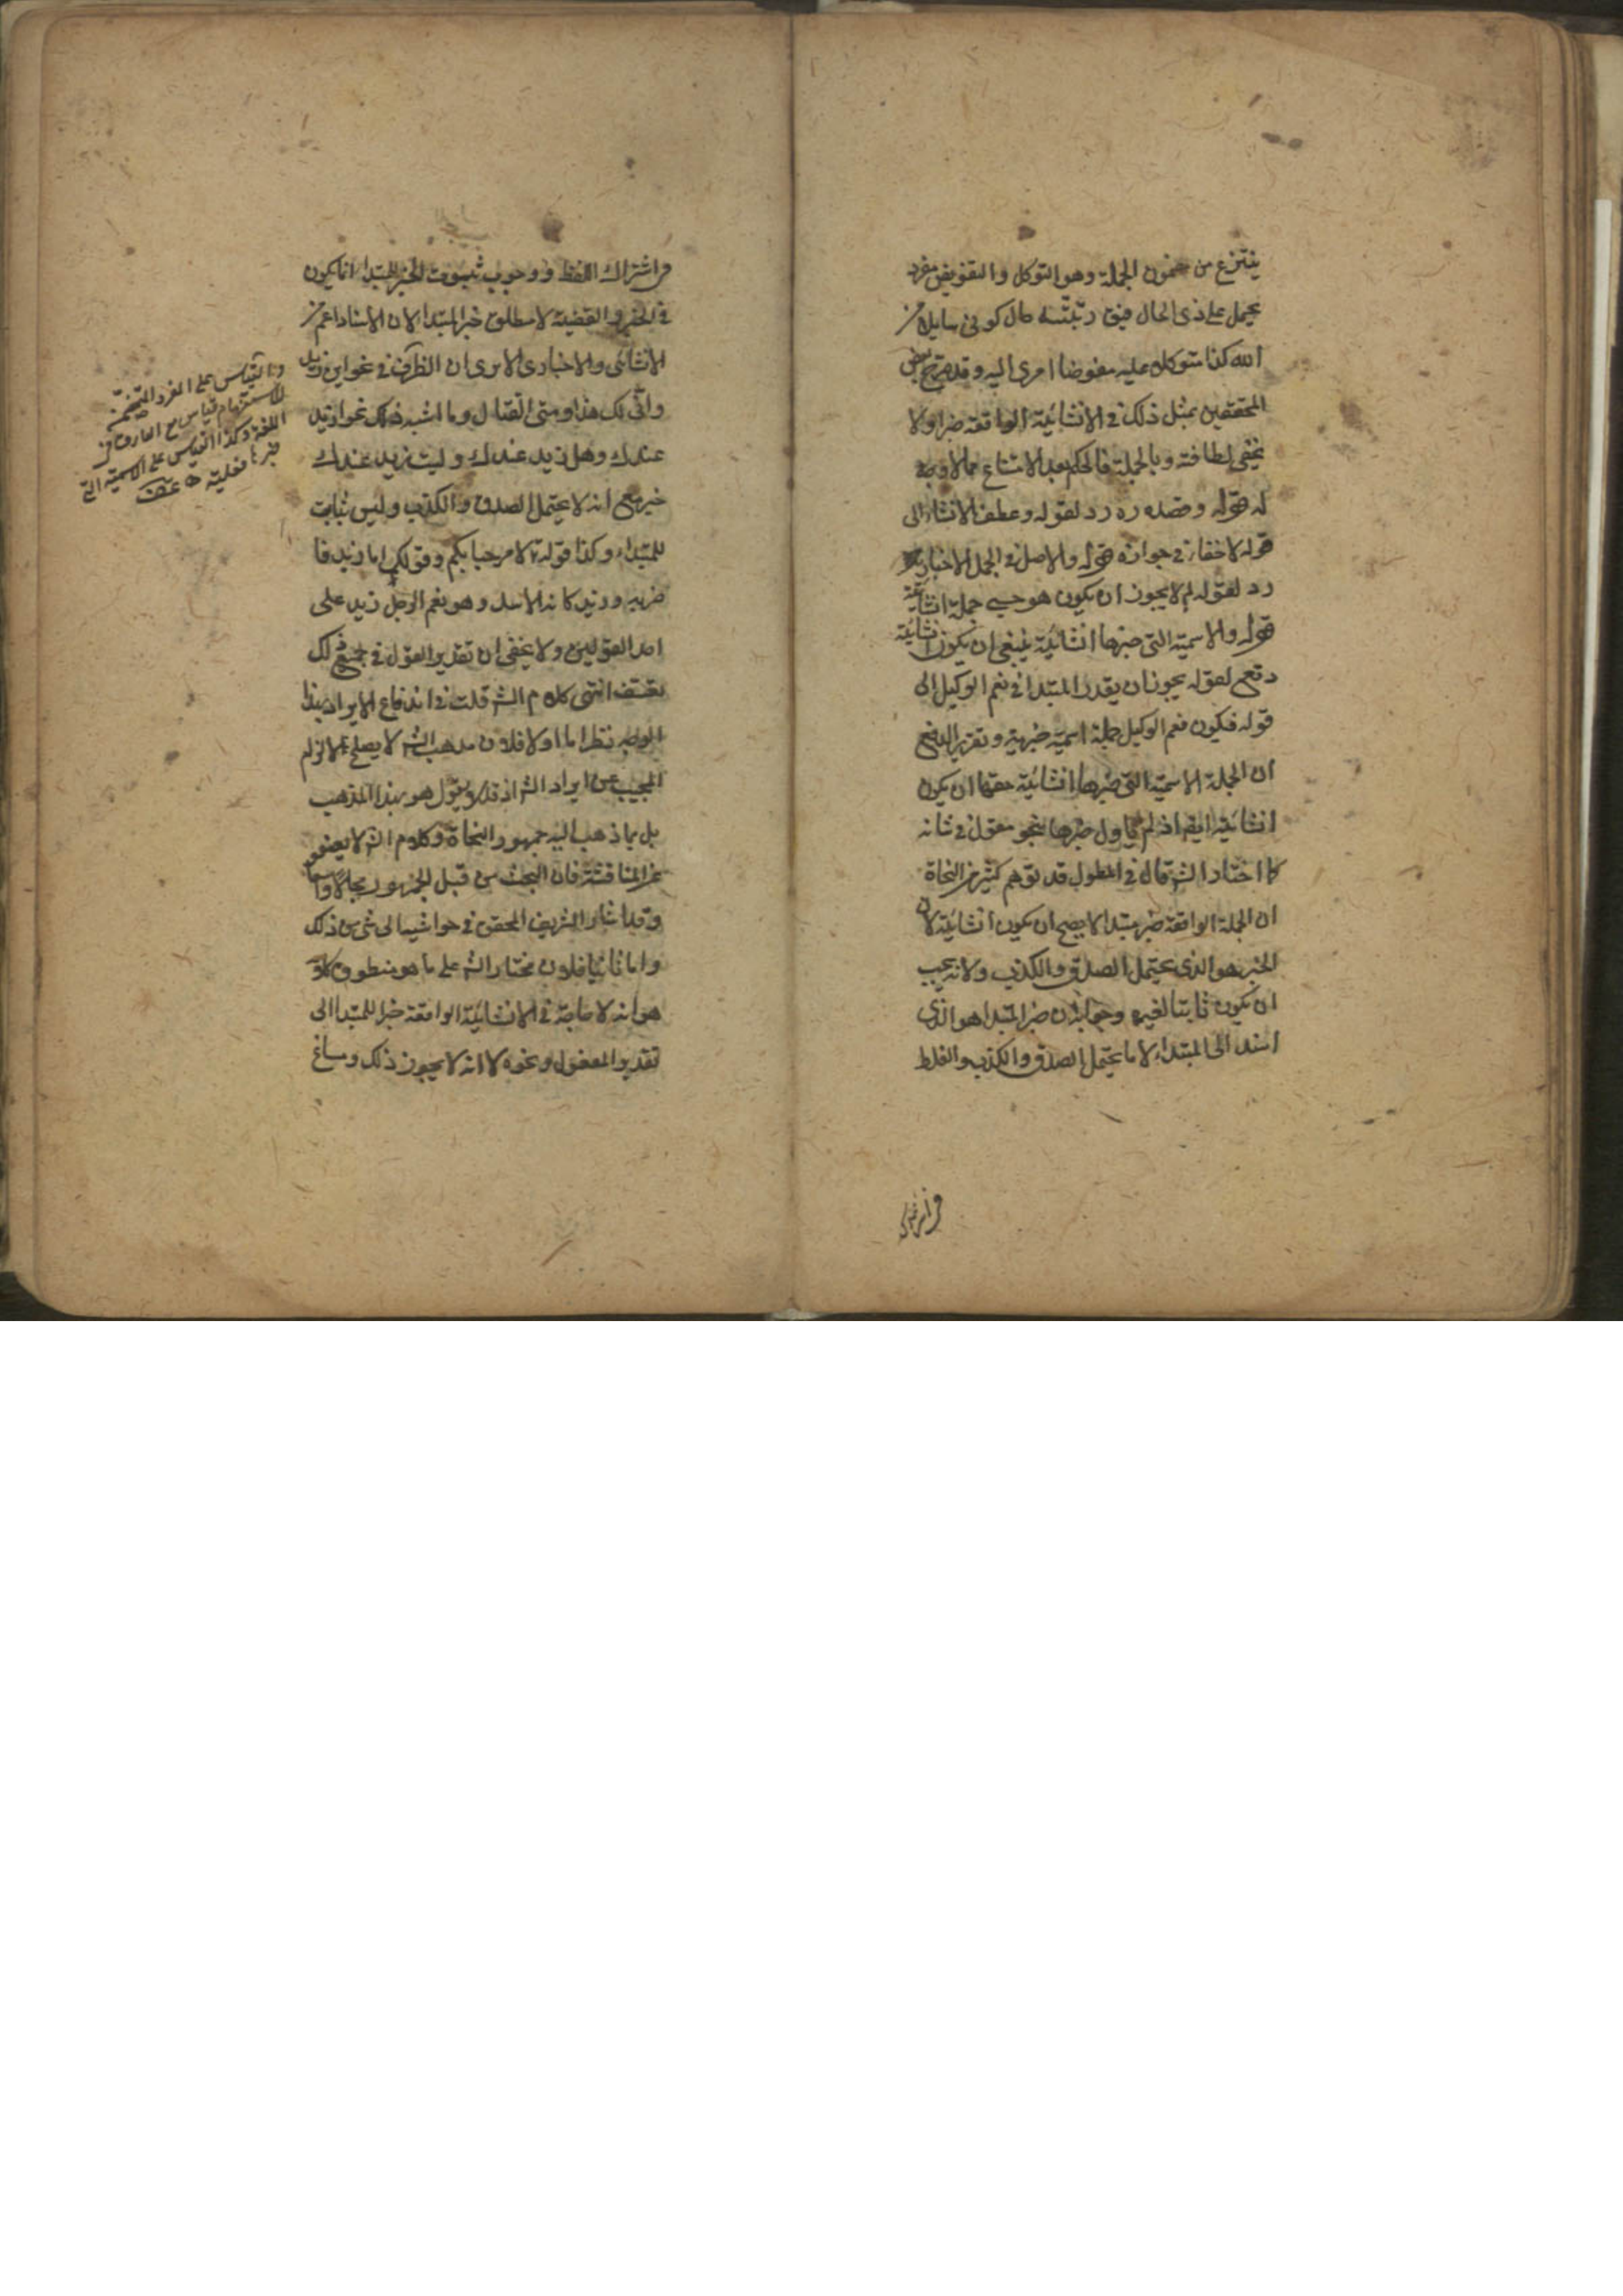 ينتزع من مضمون الجملة وهو التوكل والتفويض مفرد
يحمل على ذى الحال فيق رتبته حال كونى سايلا من
الله كذا متوكلا عليه مفوضا امرى اليه وقد صرح بعض
المحققين بمثل ذلك فى الانشائية الواقعة خبرا ولا
يخفى لطافته وبالجملة فالحكم بعد الامتناع مما لا وجه
له قوله وقصده ره رد لقوله وعطف الانشاء الى
قوله لا خفاء فى جوازه قوله والاصل فى الجمل الاخبارية
رد لقوله لم لا يجوز ان يكون هو حسبى جملة انشائية
قوله والاسمية التى خبرها انشائية ينبغى ان يكون انشائية
دفع لقوله يجوز ان يقدر المبتدا فى نعم الوكيل الى
قوله فيكون نعم الوكيل جملة اسمية خبرية وتقرير الدفع
ان الجملة الاسمية التى خبرها انشائية حقها ان يكون
انشائية ايضا اذ لم يأول خبرها بنحو مقول فى شانه
كما اختار الش قال فى المطول قد توهم كثير من النحاة
ان الجملة الواقعة خبر مبتدا لا يصح ان يكون انشائية لان
الخبر هو الذى يحتمل الصدق والكذب ولانه يجب
ان يكون ثابتا لغيره وجوابه ان خبر المبتدا هو الذى
اسند الى المبتداء لا ما يحتمل الصدق والكذب والغلط
من اشتراك
من اشتراك اللفظ ووجوب ثبوت الخبر للمبتداء انما يكون
فى الخبر والقضية لا مطلق خبر المبتدا لان الاسناد اعم من
الانشائى والاخبارى الا يرى ان الظرف فى نحو اين زيد
وانى لك هذا ومتى القتال وما اشبه ذلك نحو ازيد
عندك وهل زيد عندك وليت زيد عندك
خبر مع انه لا يحتمل الصدق والكذب وليس بثابت
للمبتداء وكذا قوله تع لا مرحبا بكم وقولك اما زيد فا
ضربه وزيد كانه الاسد وهو نعم الرجل زيد على
احد القولين ولا يخفى ان تقدير القول فى جميع ذلك
تعسف انتهى كلام الش قلت فى اندفاع الايراد بهذا
الوجه نظر اما اولا فلان مذهب الش لا يصلح لالزام
المجيب عن ايراد الش اذ قد لا يقول هو بهذا المذهب
بل بما ذهب اليه جمهور النحاة وكلام الش لا يصفو
عن المناقشة فان البحث من قبل الجمهور مجالا واسعا
وقد اشار الشريف المحقق فى حواشيه الى شئ من ذلك
واما ثانيا فلان مختار الش على ما هو منطوق كلامه
هو انه لا حاجة فى الانشائية الواقعة خبرا للمبتدا الى
تقدير المقول ونحوه لا انه لا يجوز ذلك وساغ
القياس على المفرد المتضمن
للاستفهام قياس مع الفارق فى
اللغة وكذا القياس على الاسمية التى
خبرها فعلية